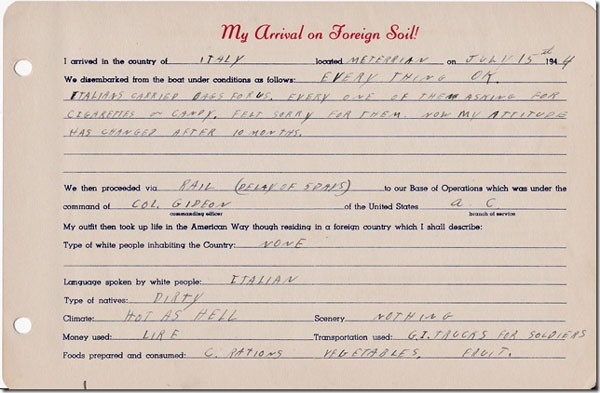 My Arrival on Foreign Soil!
I arrived in the country of ITALY located METERRIAN on JULY 15th 1944
We disembarked from the boat under conditions as follows: EVERY THING OK.
ITALIANS CARRIED BAGS FOR US. EVERY ONE OF THEM ASKING FOR
CIGARETTES OR CANDY. FELT SORRY FOR THEM. NOW MY ATTITUDE
HAS CHANGED AFTER 10 MONTHS.
We then proceeded via RAIL (DELAY OF 5 DAYS) to our Base of Operations which was under the
command of COL. GIDEON of the United States A. C.
commanding officer branch of service
My outfit then took up life in the American Way though residing in a foreign country which I shall describe:
Type of white people inhabiting the Country: NONE
Language spoken by white people: ITALIAN
Type of natives: DIRTY
Climate: HOT AS HELL Scenery NOTHING
Money used: LIRE Transportation used: G.I. TRUCKS FOR SOLDIERS
Foods prepared and consumed: C. RATIONS VEGETABLES. FRUIT.